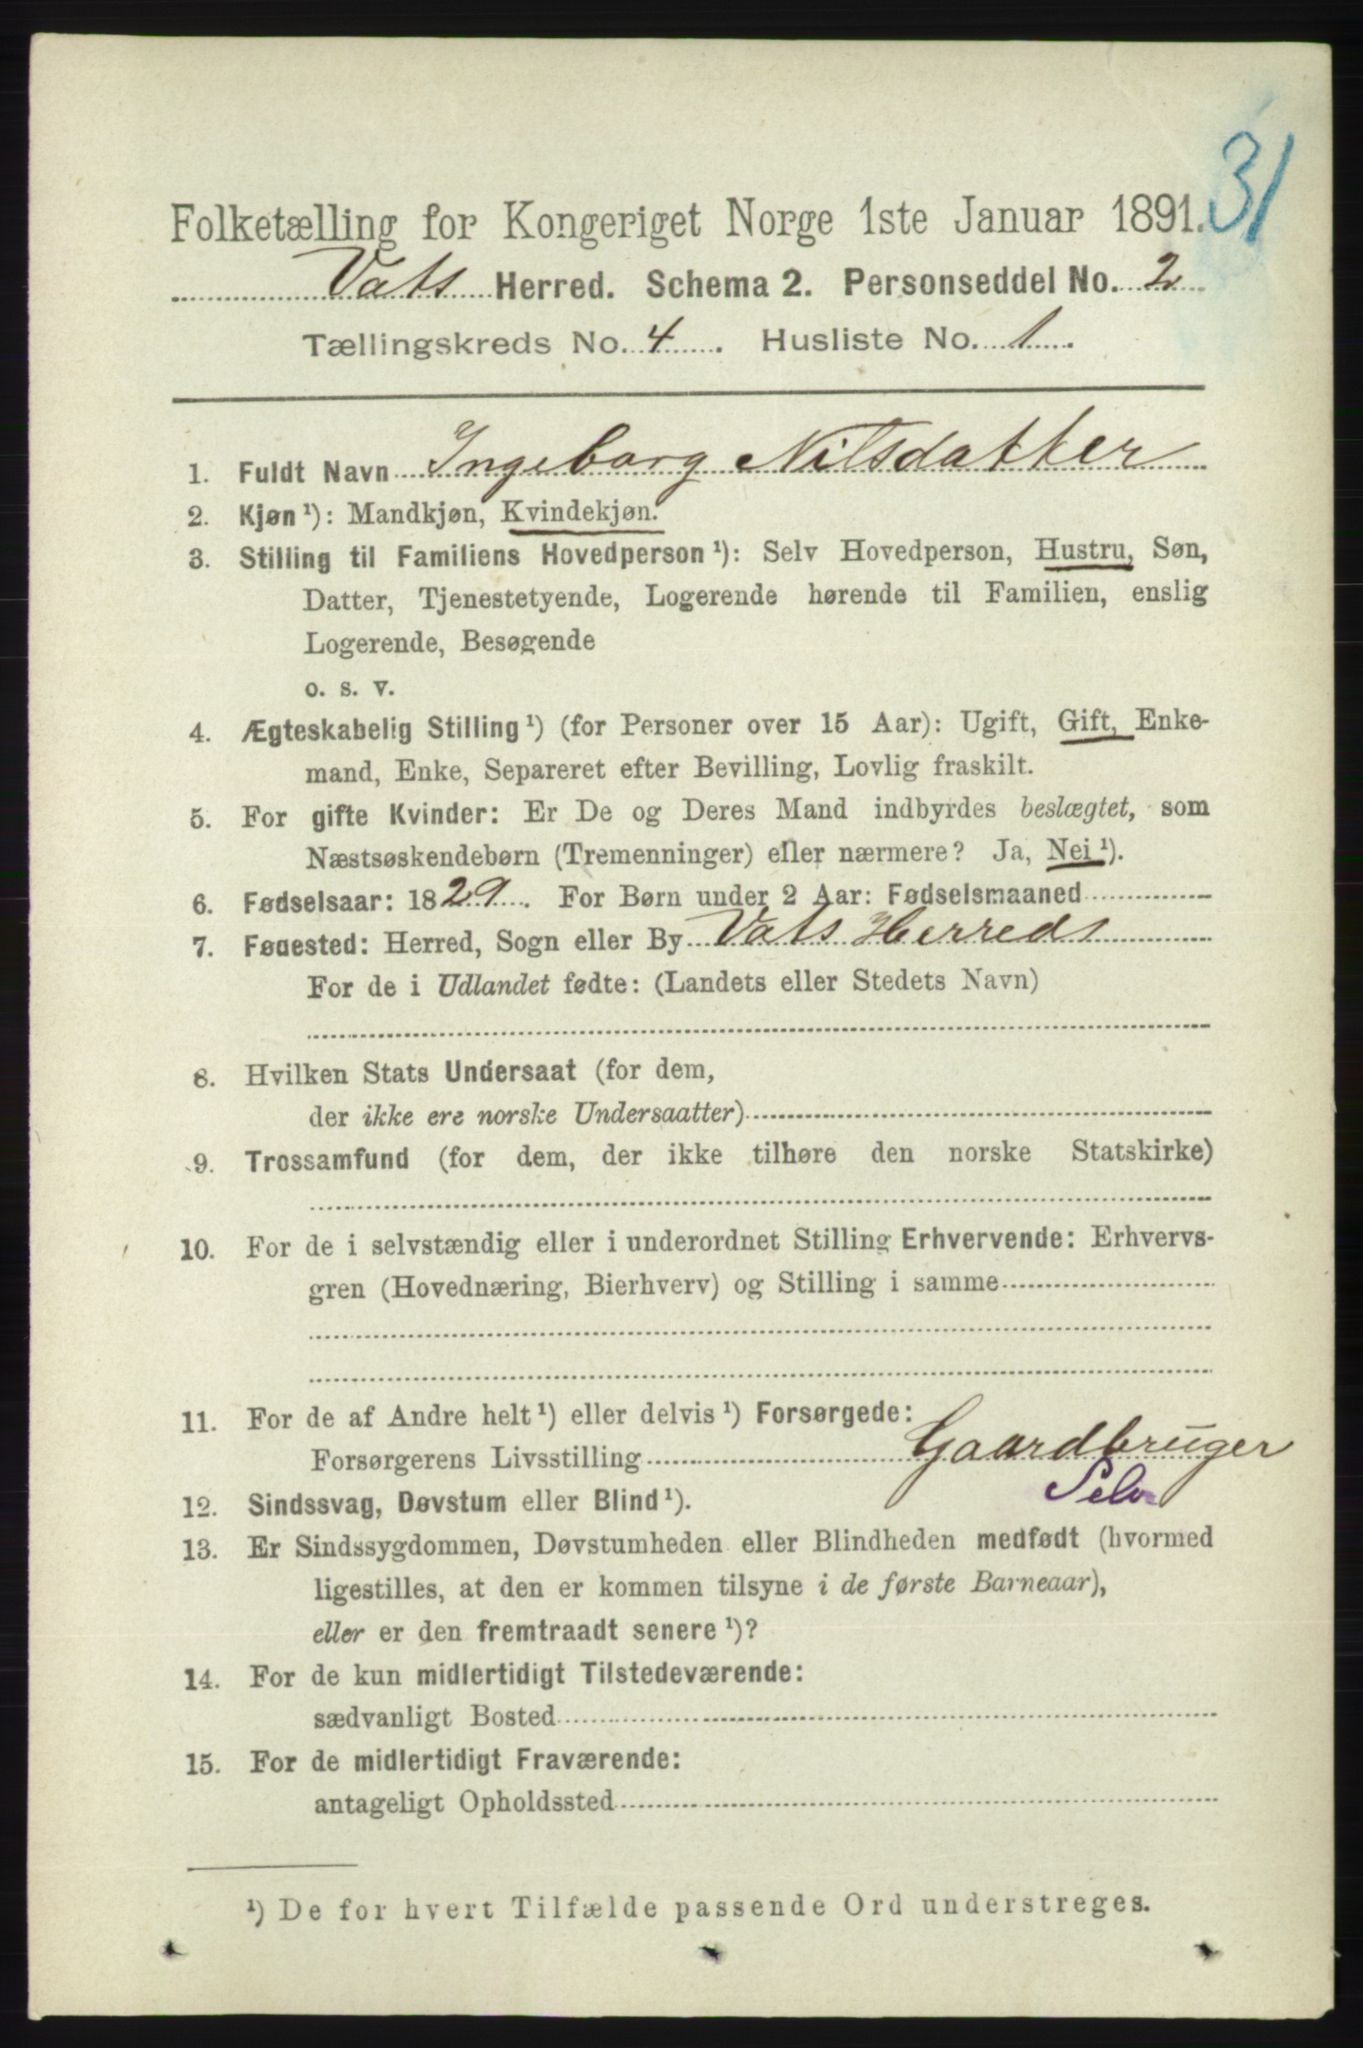 31
Folketælling for Kongeriget Norge 1ste Januar 1891.
Vats Herred. Schema 2. Personseddel No. 2
Tællingskreds No. 4. Husliste No. 1.
1. Fuldt Navn Ingeborg Nilsdatter
2. Kjøn ¹): Mandkjøn, Kvindekjøn.
3. Stilling til Familiens Hovedperson ¹): Selv Hovedperson, Hustru, Søn,
Datter, Tjenestetyende, Logerende hørende til Familien, enslig
Logerende, Besøgende
o. s. v.
4. Ægteskabelig Stilling ¹) (for Personer over 15 Aar): Ugift, Gift, Enke-
mand, Enke, Separeret efter Bevilling, Lovlig fraskilt.
5. For gifte Kvinder: Er De og Deres Mand indbyrdes beslægtet, som
Næstsøskendebørn (Tremenninger) eller nærmere? Ja, Nei ¹).
6. Fødselsaar: 1829. For Børn under 2 Aar: Fødselsmaaned
7. Fødested: Herred, Sogn eller By Vats Herred
For de i Udlandet fødte: (Landets eller Stedets Navn)
8. Hvilken Stats Undersaat (for dem,
der ikke ere norske Undersaatter)
9. Trossamfund (for dem, der ikke tilhøre den norske Statskirke)
10. For de i selvstændig eller i underordnet Stilling Erhvervende: Erhvervs-
gren (Hovednæring, Bierhverv) og Stilling i samme
11. For de af Andre helt ¹) eller delvis ¹) Forsørgede:
Forsørgerens Livsstilling Gaardbruger
Selv
12. Sindssvag, Døvstum eller Blind ¹).
13. Er Sindssygdommen, Døvstumheden eller Blindheden medfødt (hvormed
ligestilles, at den er kommen tilsyne i de første Barneaar),
eller er den fremtraadt senere ¹)?
14. For de kun midlertidigt Tilstedeværende:
sædvanligt Bosted
15. For de midlertidigt Fraværende:
antageligt Opholdssted
¹) De for hvert Tilfælde passende Ord understreges.